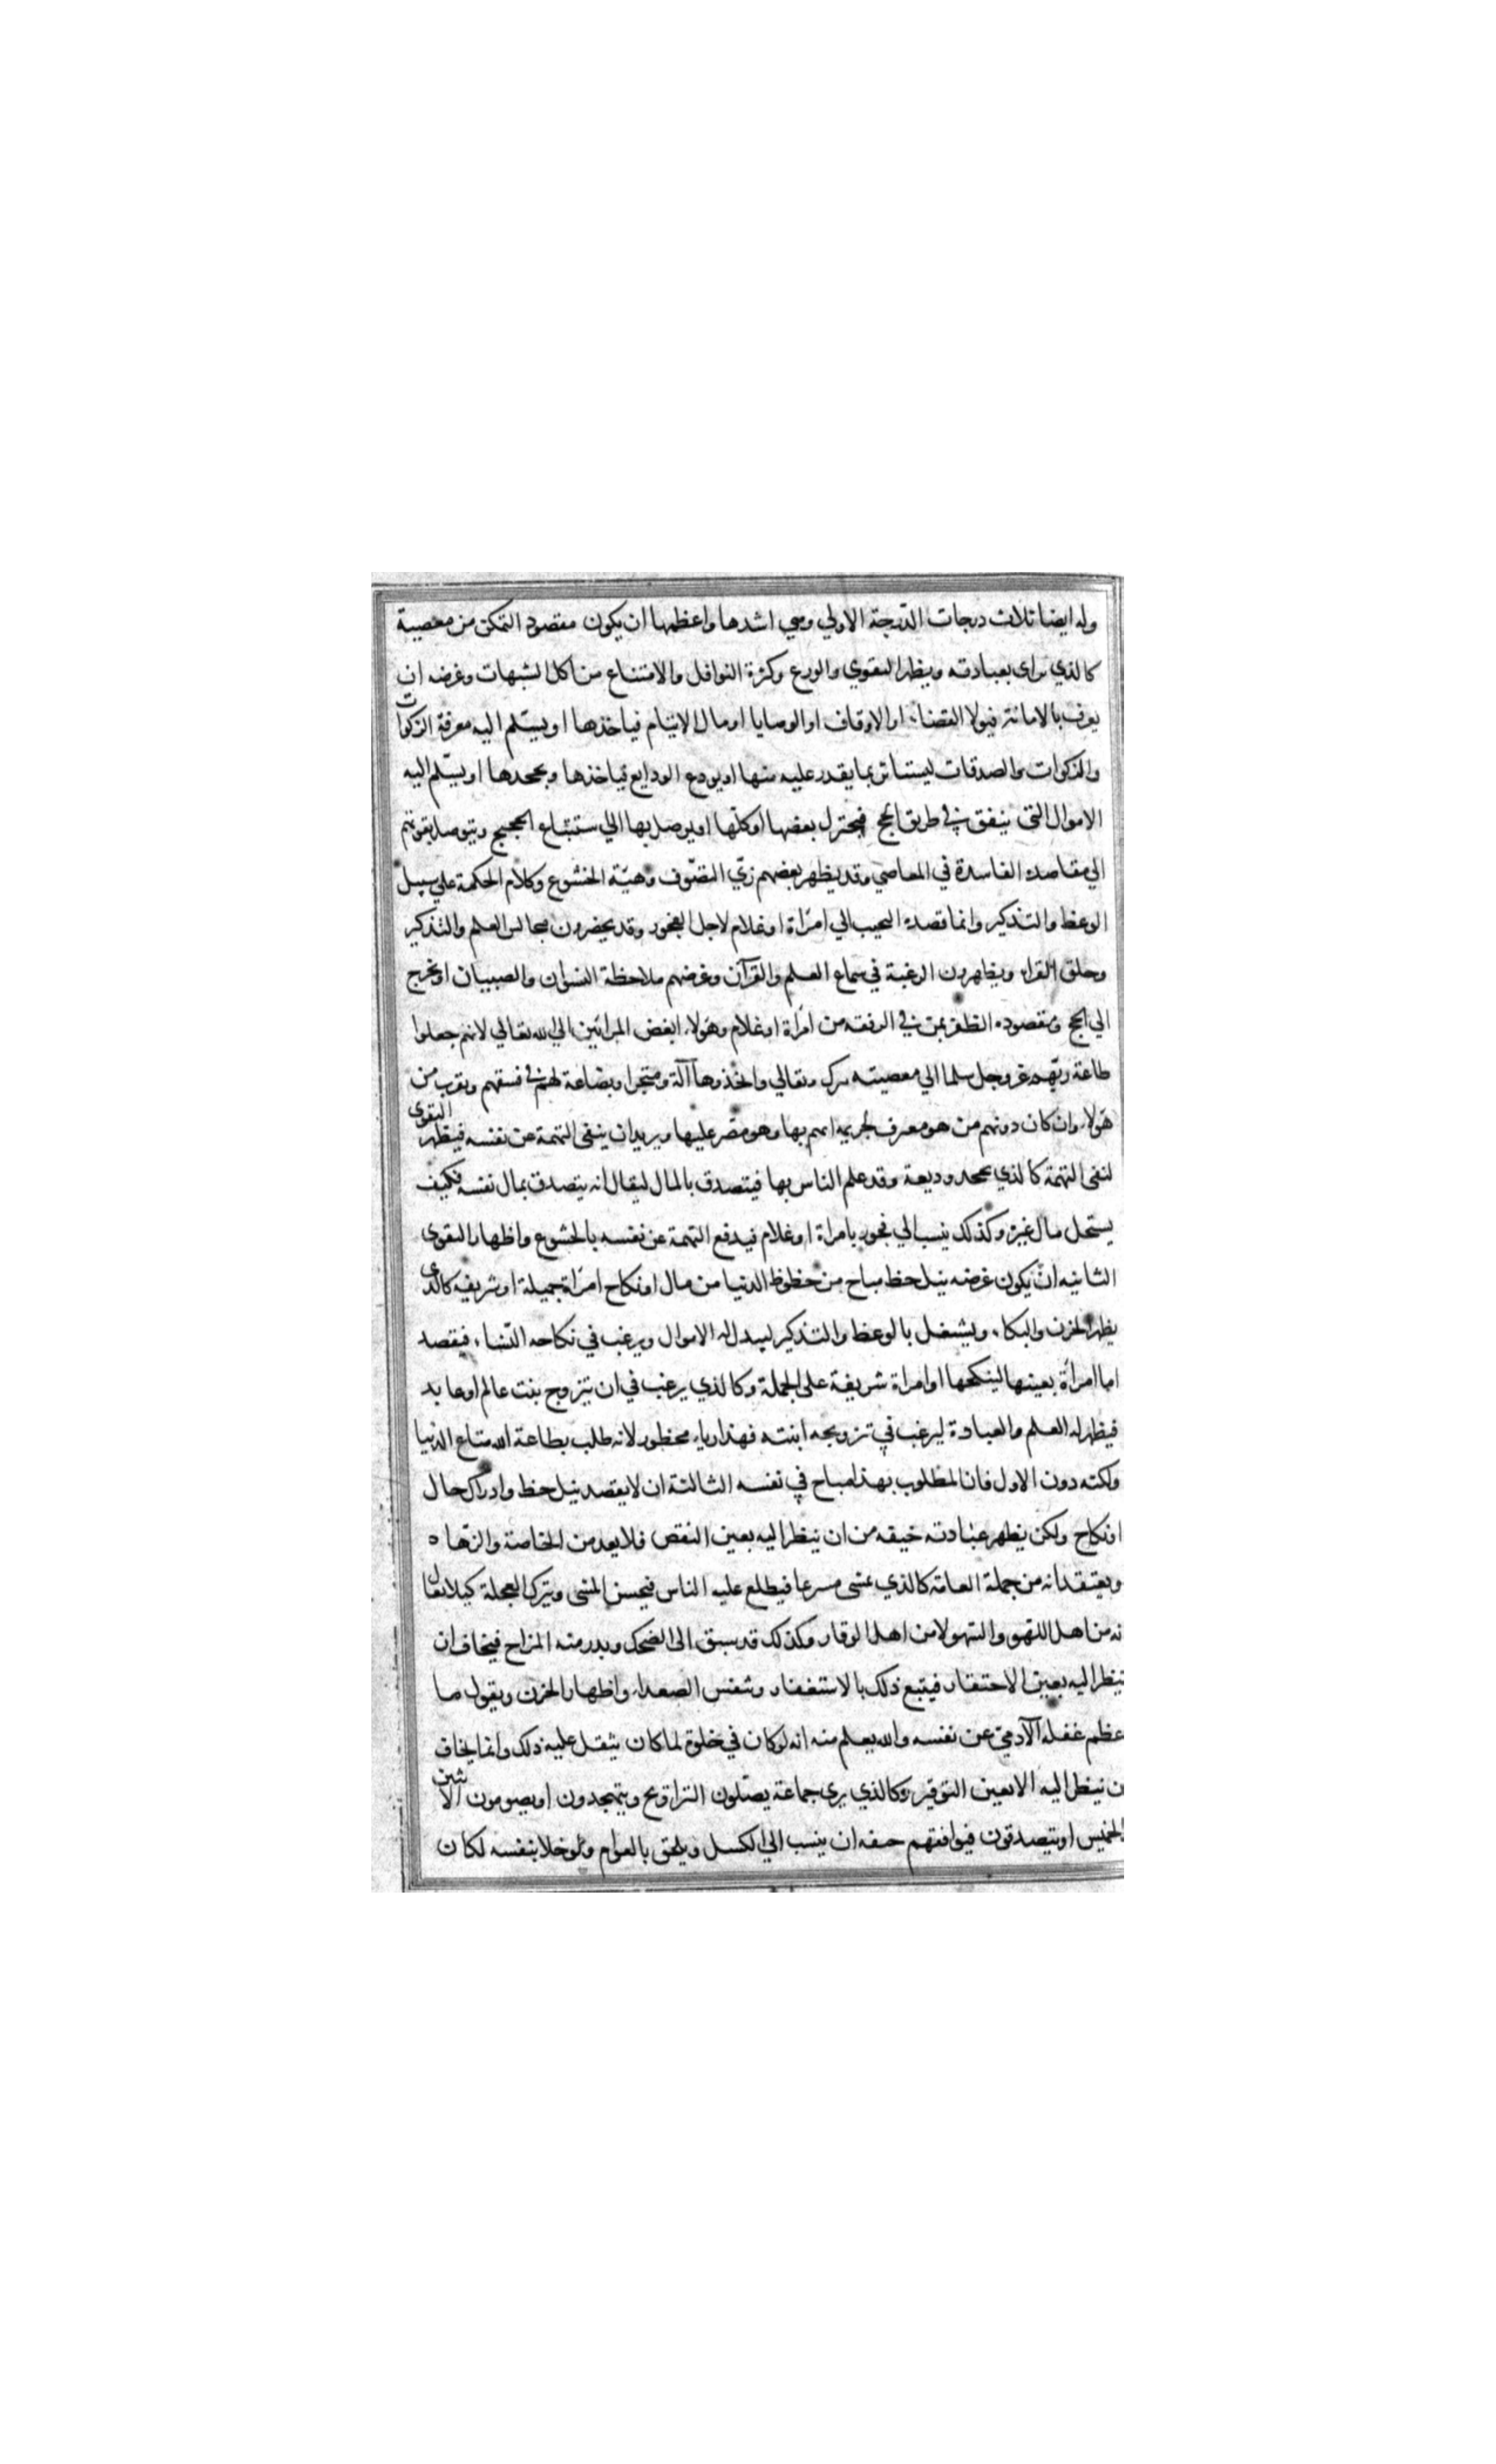 وله ايضا ثلاث درجات الدّرجة الاولي وهي اشدها واعظمها ان يكون مقصود التمكن من معصية
كالذي يراى بعبادته ويظهر التقوي والورع وكثرة النوافل والامتناع من اكل الشبهات وغرضه ان
يعرف بالامانة فيولا القضاء او الاوقاف او الوصايا او مال الايتام فياخذها او يسّلم اليه معرفة الزكوات
والزكوات والصدقات ليستاثر بما يقدر عليه منها او يودع الودايع فياخذها ويجحدها او يسّلم اليه
الاموال التي ينفق في طريق الحج فيختزل بعضها او كلّها او يوصل بها الي ستتباع الحجيج ويتوصل بقوتهم
الي مقاصده الفاسدة في المعاصي وقد يظهر بعضهم زيّ التصّوف وهيّة الخشوع وكلام الحكمة علي سبيل
الوعظ والتذكير وانما قصده التحبب الي امرّاة او غلام لاجل الفجور وقد يحضرون مجالس العلم والتذكير
وحلق القراء ويظهرون الرغبة في سماع العلم والقرآن وغرضهم ملاحظة النسوان والصبيان او يخرج
الي الحج ومقصوده الظفر بمن في الرفقه من امرأة او غلام وهولاء ابغض المرائين الي الله تعالي لانهم جعلوا
طاعة ربّهم عز وجل سلما الي معصيته تبرك وتعالي واتخذوها آلة ومتجرا وبضاعة لهم في فسقهم ويقرب من
هولاء وان كان دونهم من هو معرف لجريمه اتهم بها وهو مصّر عليها ويريد ان ينفى التهمة عن نفسه فيظهر التقوى
لنفى التهمة كالذي جحد وديعة وقد علم الناس بها فيتصدق بالمال ليقال انه يتصدق بمال نفسه فكيف
يستحل مال غيره وكذلك ينسب الي فجور بامراة او غلام فيدفع التهمة عن نفسه بالخشوع واظهار التقوى
الثانيه ان يكون غرضه نيل حظ مباح من حظوظ الدنيا من مال او نكاح امرّاة جميلة او شريفه كالذي
يظهر الحزن والبكاء ويشتغل بالوعظ والتذكير ليبدل له الاموال ويرغب في نكاحه النّساء فيقصد
اما امرأة بعينها لينكحها او امراة شريفة على الجملة وكالذي يرغب في ان يتزوج بنت عالم او عابد
فيظهر له العلم والعبادة ليرغب في تزويجه ابنته فهذا رياء محظور لانه طلب بطاعة الله متاع الدنيا
ولكنه دون الاول فان المطلوب بهذا مباح في نفسه الثالثة ان لا يقصد نيل حظ وادراك حال
او نكاح ولكن يظهر عبادته خيفه من ان ينظر اليه بعين النقص فلا يعد من الخاصة والزهاد
ويعتقد انه من جملة العامة كالذي يمشى مسرعا فيطلع عليه الناس فيحسن المشى ويترك العجلة كيلا يقال
نه من اهل اللهو والسهو لا من اهل الوقار وكذلك قد يسبق الى الضحك ويبدر منه المزاح فيخاف ان
ينظر اليه بعين الاحتقار فيتبع ذلك بالاستغفار وتنفس الصعداء واظهار الحزن ويقول ما
عظم غفله الآدميّ عن نفسه والله يعلم منه انه لو كان في خلوة لما كان يثقل عليه ذلك وانما يخاف
ن ينظر اليه الا بعين التوقير وكالذي يرى جماعة يصّلون التراويح ويتهجدون او يصومون الاثنين
الخميس او يتصدقون فيوافقهم خيفه ان ينسب الي الكسل ويلحق بالعوام ولو خلا بنفسه لكان